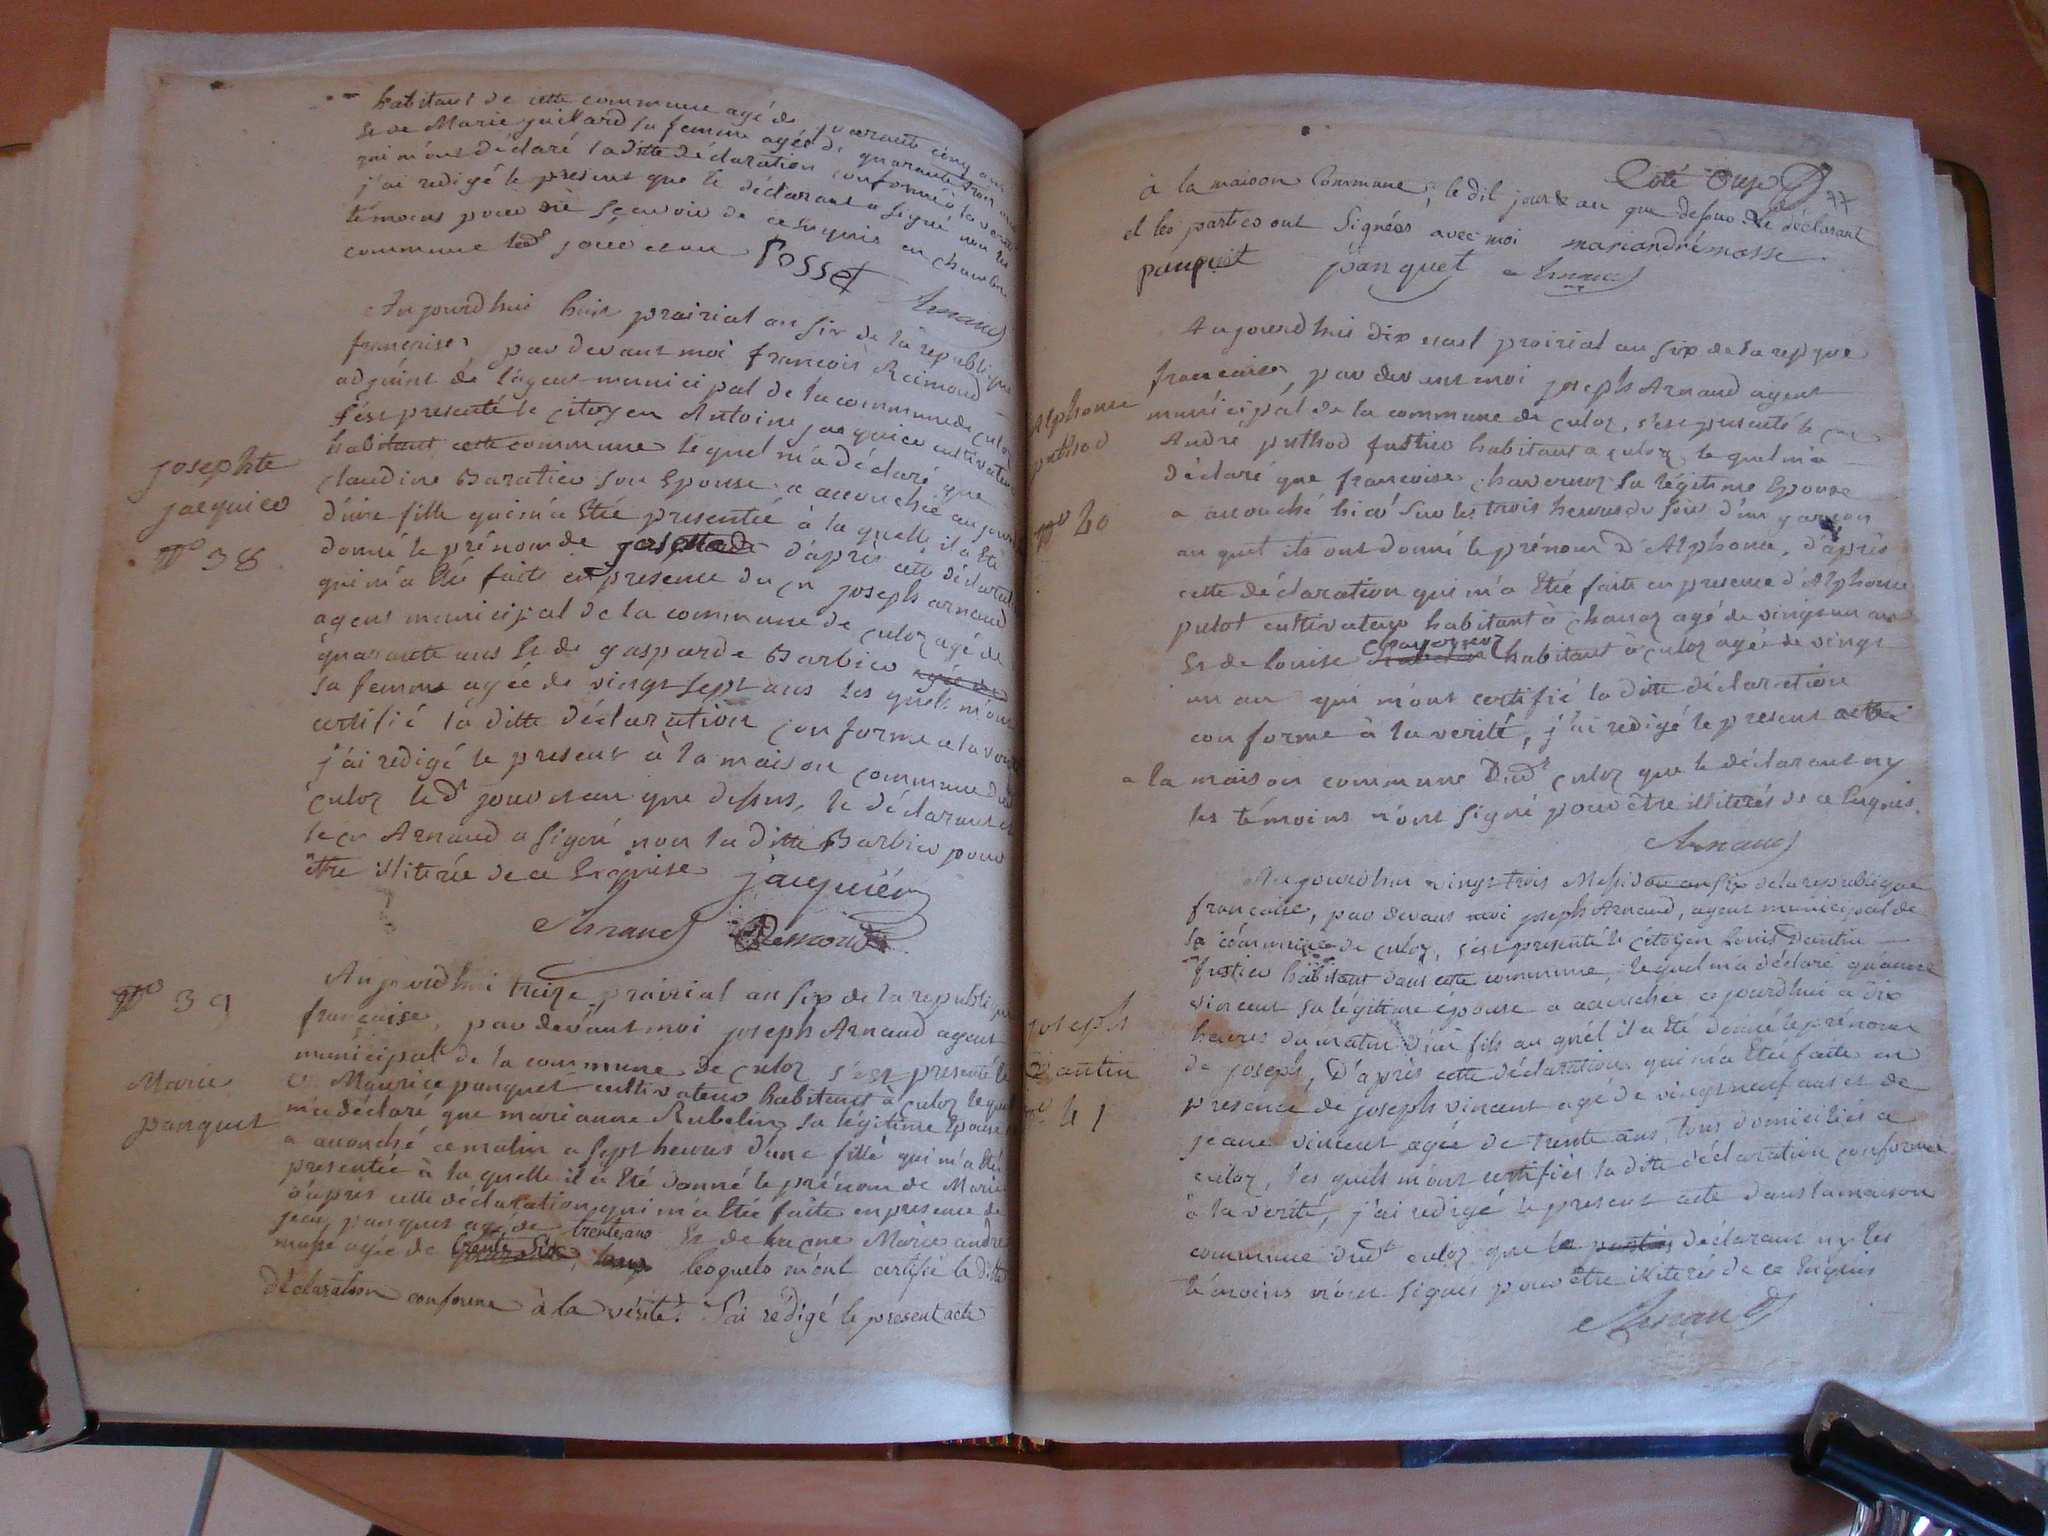 habitant de cette commune agé de quarante cinq ans
Et de Marie juilard sa femme agée de quarante trois ans
qui m'ont déclaré la ditte déclaration conforme à la verité
j'ai redigé le present que le déclarant a signé non les
témoins pour ne sçavoir de ce enquis en chambre
commune led. jour et an Posset
Arnaud
Aujourdhui huit prairial an six de la republique
francaise, par devant moi francois Reimond
adjoint de l'agent municipal de la commune de culoz
s'est presenté le citoyen Antoine jacquier cultivateur
habitant cette commune lequel m'a déclaré que
claudine Baratier son Epouse a accouchée aujourd
d'une fille qui m'a Eté presentée à la quelle il a Eté
donné le prénom de d'après cette déclarat
josephte
jacquier
No 38
qui m'a Eté faite en presence du cn joseph arnaud
agent municipal de la commune de culoz agé de
quarante ans Et de gasparde Barbier agée de
sa femme agée de vingt sept ans les quels m'ont
certifié la ditte déclaration conforme a la verité
j'ai redigé le present à la maison commune dud
culoz led. jour et an que dessus, le déclarant et
le cn Arnaud a signé non la ditte Barbier pour
être illiterée de ce Enquise jacquier
Arnaud Reimond
No 39
Aujourdhui treize prairial an six de la republique
française, par devant moi joseph Arnaud agent
municipal de la commune de culoz s'est presenté le
cn Maurice panquet cultivateur habitant à culoz lequel
m'a déclaré que marianne Rubelin sa légitime Epouse
a accouché ce matin a sept heures d'une fille qui m'a Eté
presentée à la quelle il a Eté donné le prénom de Marie
d'après cette déclaration qui m'a Eté faite en presence de
jean panquet agé de trente ans Et de Marie andré
masse agée de trente six, lesquels m'ont certifié la ditte
déclaration conforme à la vérité. J'ai rédigé le present acte
Marie
panquet
Coté Onze 77
à la maison Commune, le dit jour & an que dessus le déclarant
et les parties ont Signées avec moi mariandrémasse
panquet panquet Arnaud
Aujourdhui dix neuf prairial an six de la repque
francaise, par devant moi joseph Arnaud agent
municipal de la commune de culoz, s'est presenté le cn
André puthod fustier habitant a culoz le quel m'a
déclaré que francoise chavornoz sa légitime Epouse
a accouché hier sur les trois heures du soir d'un garcon
au quel ils ont donné le prénom d'Alphonse, d'après
cette déclaration qui m'a Eté faite en presence d'Alphonse
putot cultivateur habitant à chanaz agé de vingt un ans
Et de louise chavornoz habitant à culoz agée de vingt
un an qui m'ont certifié la ditte déclaration
conforme à la verité, j'ai redigé le present acte
a la maison commune dud. culoz que le déclarant ny
les témoins n'ont signé pour être illiterés de ce Enquis.
Arnaud
Alphonse
puthod
No 40
Aujourdhui vingt trois Messidor an six de la republique
francaise, par devant moi joseph Arnaud, agent municipal de
la commune de culoz, s'est presenté le citoyen louis Dantin
fustier habitant dans cette commune, lequel m'a déclaré qu'anne
vincent sa légitime épouse a accouchée ce jourdhui a dix
heures du matin d'un fils au quel il a Eté donné le prénom
de joseph, D'après cette déclaration qui m'a Eté faite en
presence de joseph vincent agé de vingt neuf ans et de
jeane vincent agée de trente ans, tous domiciliés a
culoz, les quels m'ont certifiés la ditte déclaration conforme
à la verité, j'ai redigé le present acte dans la maison
commune dud. culoz que le parties déclarant ny les
témoins n'ont signés pour être illiterés de ce Enquis
Arnaud
joseph
Dantin
No 41